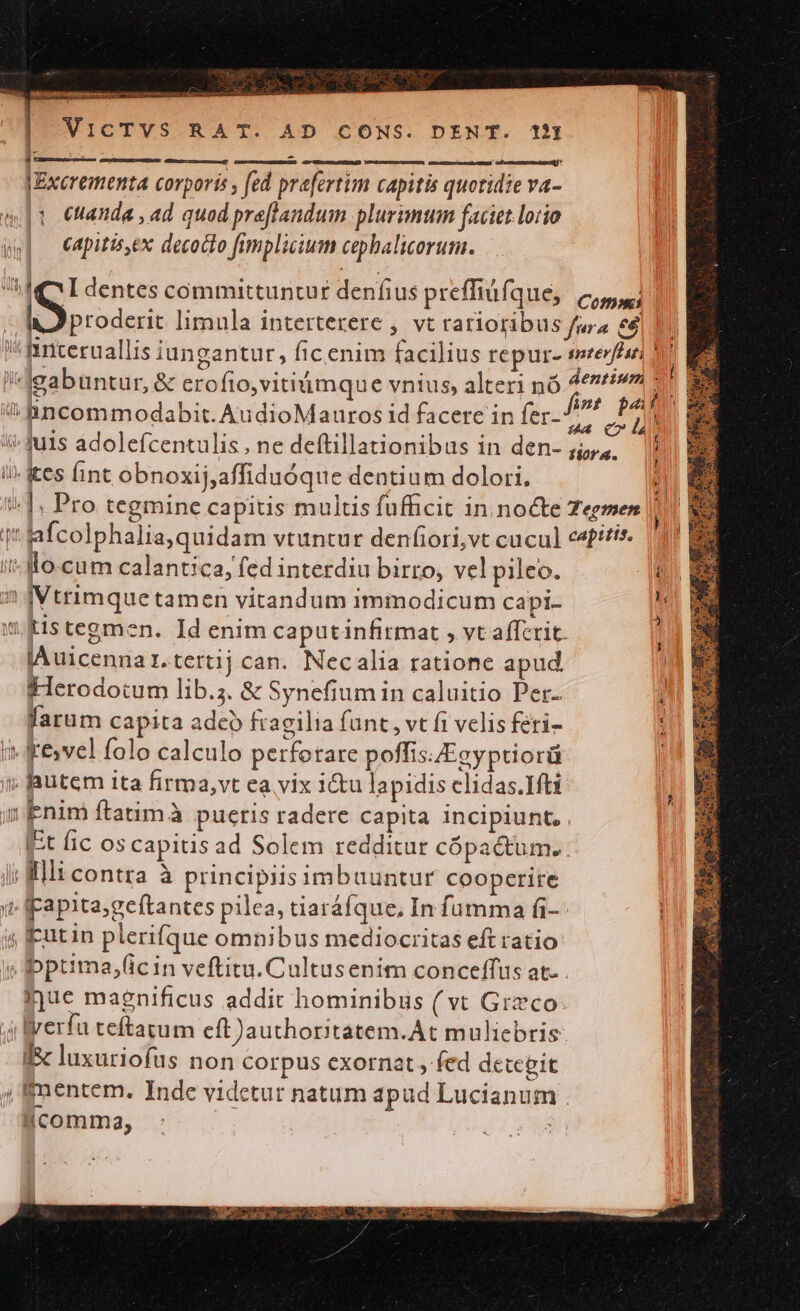 VICTVS RAT. AD CONS. DENT. 121
Excrementa corporis, ſed præſertim capitis quotidie va-
cuanda, ad quod præſtandum plurimum faciet lotio
capitis, ex decocto ſimplicium cephalicorum.
SI dentes committuntur denſius preſſiúſque,
proderit limula interterere, vt rarioribus
interuallis iungantur, ſic enim facilius repur-
gabuntur, & eroſio, vitiúmque vnius, alteri nõ
incommodabit. Audio Mauros id facere in ſer-
uis adoleſcentulis, ne deſtillationibus in den-
tes ſint obnoxij, aſſiduóque dentium dolori.
Commiſſura
interſti
dentium
ſint
tiora.
Pro tegmine capitis multis ſufficit in nocte
faſcolphalia, quidam vtuntur denſiori, vt cucul
lo cum calantica, ſed interdiu birro, vel pileo.
Tegmen
capitis.
Vtrimque tamen vitandum immodicum capi-
tis tegmen. Id enim caput infirmat, vt aſſerit
Auicenna 1. tertij can. Nec alia ratione apud
Herodotum lib.3. & Syneſium in caluitio Per-
ſarum capita adeò fragilia ſunt, vt ſi velis feri-
re, vel ſolo calculo perforare poſſis: Ægyptiorũ
autem ita firma, vt ea vix ictu lapidis elidas. Iſti
enim ſtatim à pueris radere capita incipiunt.
Et ſic os capitis ad Solem redditur cõpactum.
Illi contra à principiis imbuuntur cooperire
capita, geſtantes pilea, tiaráſque. In ſumma ſi-
cut in pleriſque omnibus mediocritas eſt ratio
optima, ſic in veſtitu. Cultus enim conceſſus at-
que magnificus addit hominibus (vt Græco
verſu teſtatum eſt) authoritatem. At muliebris
& luxurioſus non corpus exornat, ſed detegit
mentem. Inde videtur natum apud Lucianum
comma,